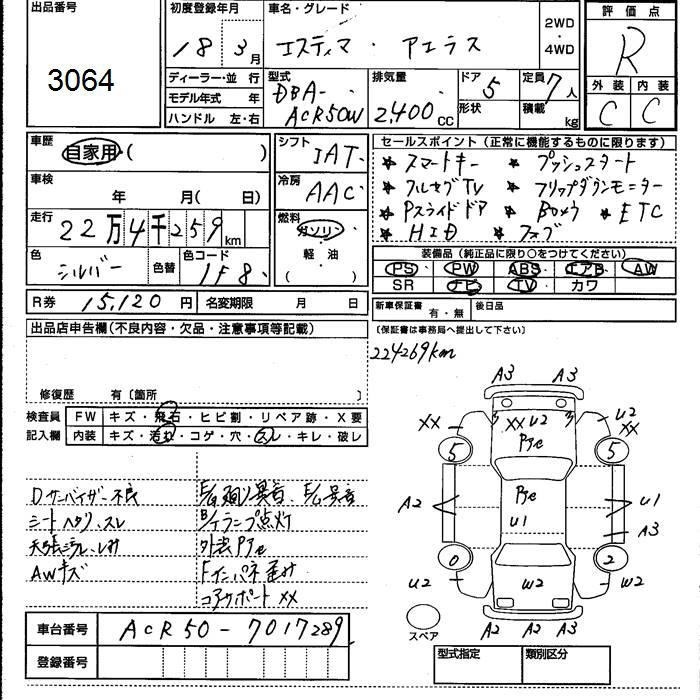 出品番号
3064
初度登録年月
18 3月
車名・グレード
エスティマ・アエラス
2WD
・
4WD
評価点
R
外装 内装
C C
ディーラー・並 行
モデル年式 年
ハンドル 左・右
型式
DBA-
ACR50W
排気量
2,400cc
ドア 5
形状
定員 7人
積載 kg
車歴
自家用( )
車検
年 月( 日)
走行
22万4千259km
色
シルバー
色替
色コード
1F8
シフト
IAT
冷房
AAC
燃料
ガソリン
(軽・油)
セールスポイント(正常に機能するものに限ります)
★ スマートキー ★ プッシュスタート
★ フルセグTV ★ フリップダウンモニター
★ Pスライドドア ★ Bカメラ ★ ETC
★ HID ★ フォブ
装備品(純正品に限り○をつけてください)
PS PW ABS エアB AW
SR ナビ TV カワ
R券 15,120円
名変期限 月 日
新車保証書 有・無
後日品
(保証書は事務局へ提出して下さい)
出品店申告欄(不良内容・欠品・注意事項等記載)
224269km
修復歴 有〔箇所 〕
検査員
記入欄
FW キズ・飛石・ヒビ割・リペア跡・X要
内装 キズ・汚れ・コゲ・穴・スレ・キレ・破レ
Dサンバイザー不良
シートヘタリ、スレ
AWキズ
E/G廻り異音、
B/Tランプ点灯
外装Pje
Fインパネ歪み
コアサポートXX
A3 A3
XX U2
XX
3 XX U2 3
Pje
5 5
Pje
U1
A2
U1
A3
0 2
U2 W2 W2
A2 A2 A3
スペア
車台番号 ACR50-7017289
登録番号
型式指定
類別区分